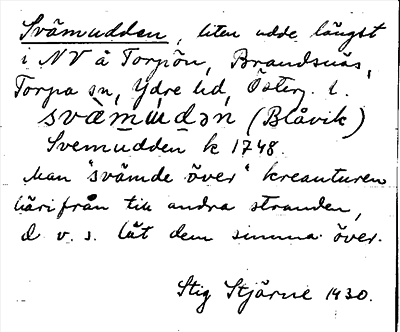 Svämudden, liten udde längst
i NV å Torpön, Brandsnäs,
Torpa sn, Ydre hd, Österg. l.
svämùdən (Blåvik)
Svemudden k 1748.
Man "svämde över" kreauturen
härifrån till andra stranden,
d v. s. lät dem simma över.
Stig Stjärne 1930.